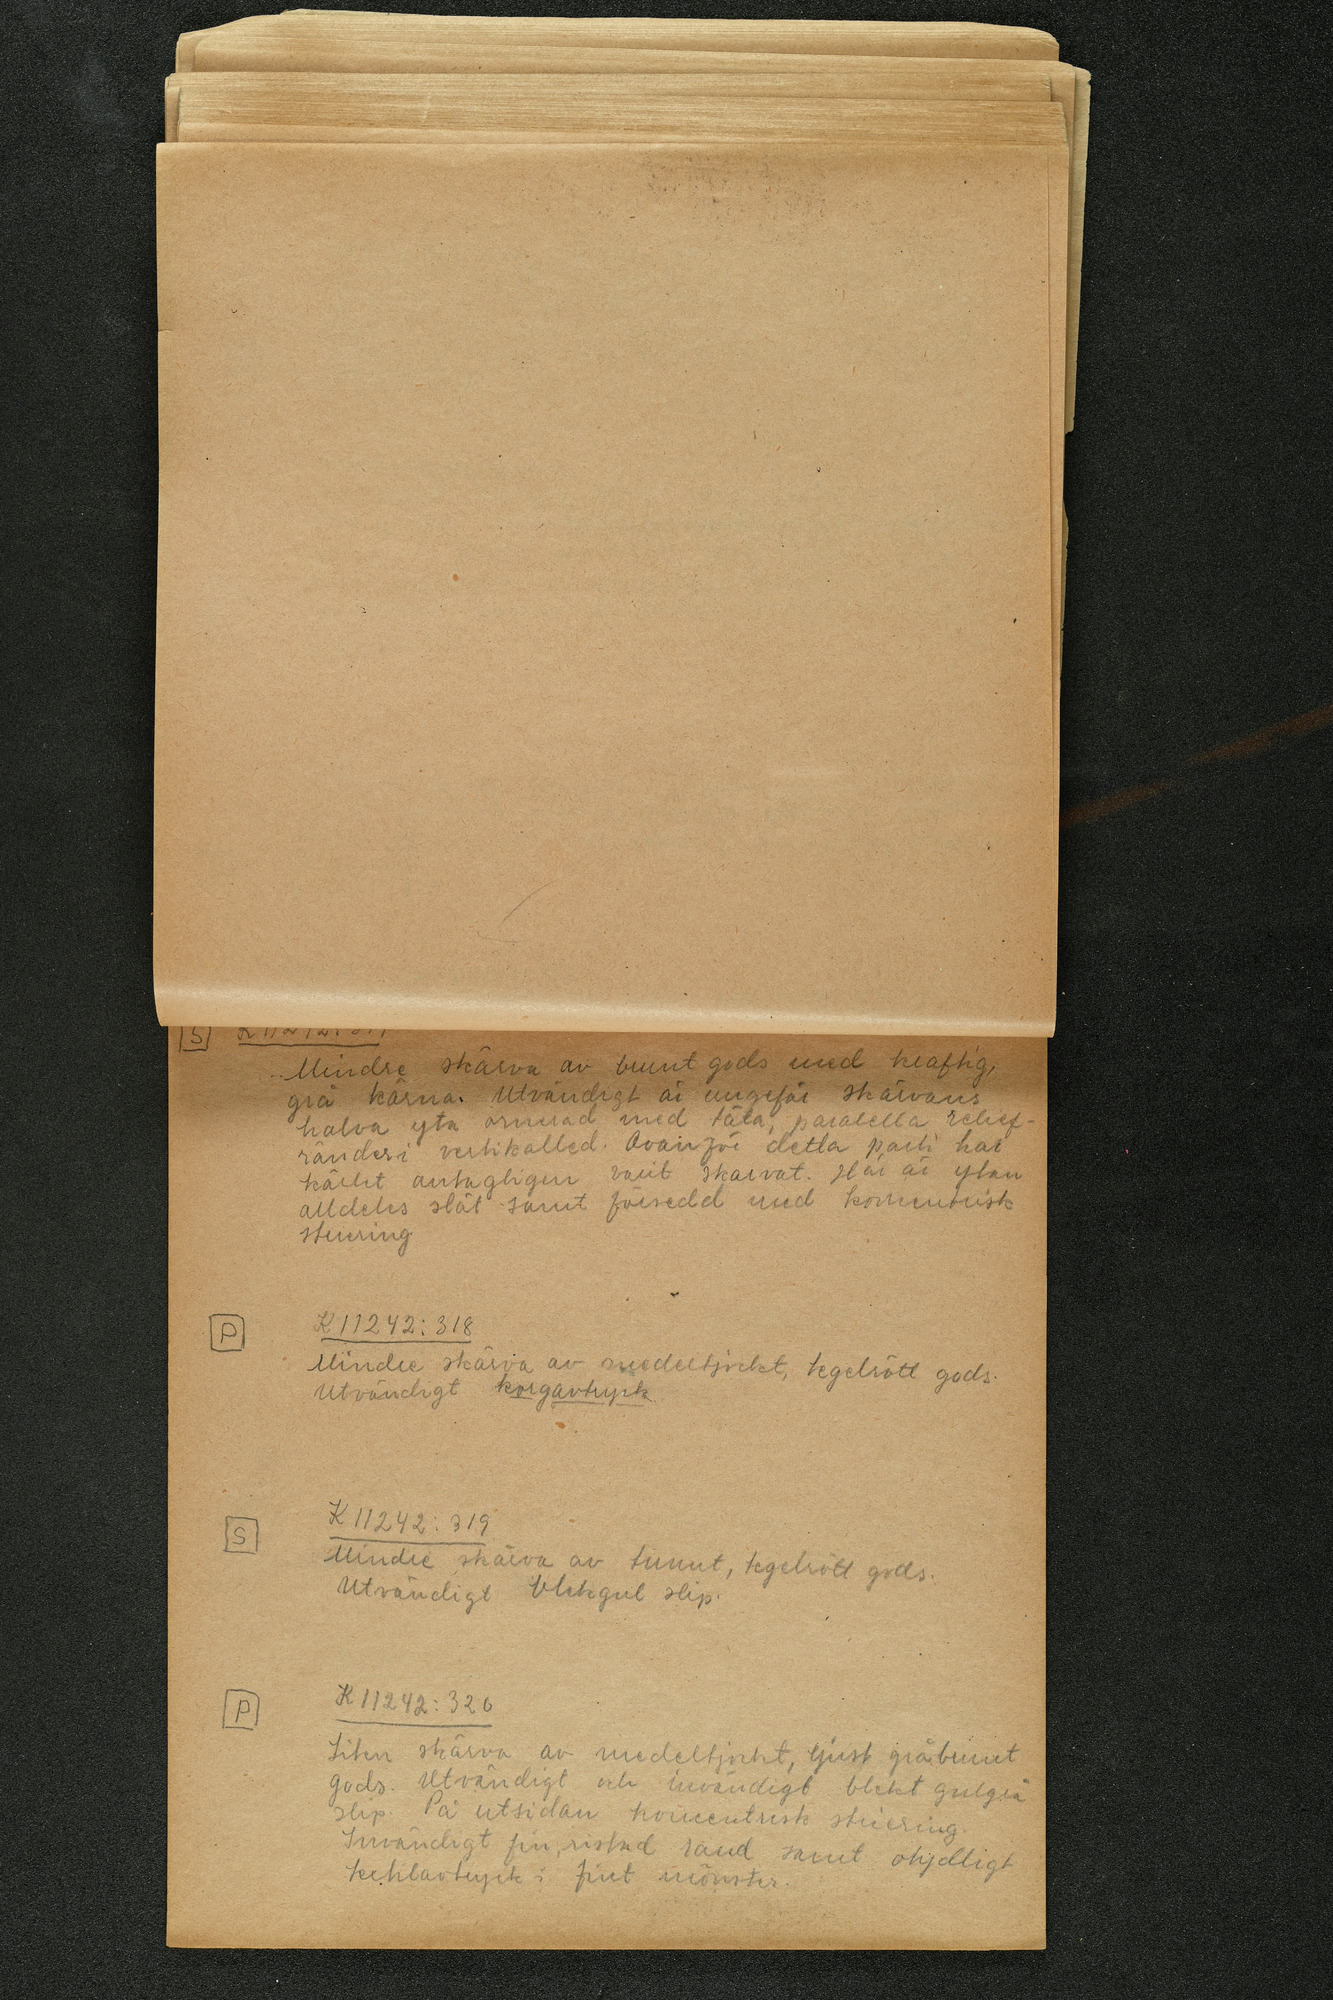 [S] K 11242:317
Mindre skärva av brunt gods med kraftig,
grå kärna. Utvändigt är ungefär skärvans
halva yta ornerad med täta, paralella relief-
ränder i vertikalled. Ovanför detta parti har
kärlet antagligen varit skarvat. Här är ytan
alldeles slät samt försedd med koncentrisk
striering
[P] K 11242:318
Mindre skärva av medeltjockt, tegelrött gods.
Utvändigt korgavtryck
[S] K 11242:319
Mindre skärva av tunnt, tegelrött gods.
Utvändigt blekgul slip.
[P] K 11242:320
Liten skärva av medeltjockt, ljust gråbrunt
gods. Utvändigt och invändigt blekt gulgrå
slip. På utsidan koncentrisk striering.
Invändigt fin, ristad rand samt otydligt
textilavtryck i fint mönster.